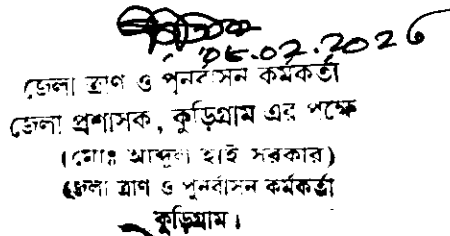 ০৮.০২.২০২৬
জেলা ত্রাণ ও পুনর্বাসন কর্মকর্তা
জেলা প্রশাসক, কুড়িগ্রাম এর পক্ষে
(মোঃ আব্দুল হাই সরকার)
জেলা ত্রাণ ও পুনর্বাসন কর্মকর্তা
কুড়িগ্রাম।